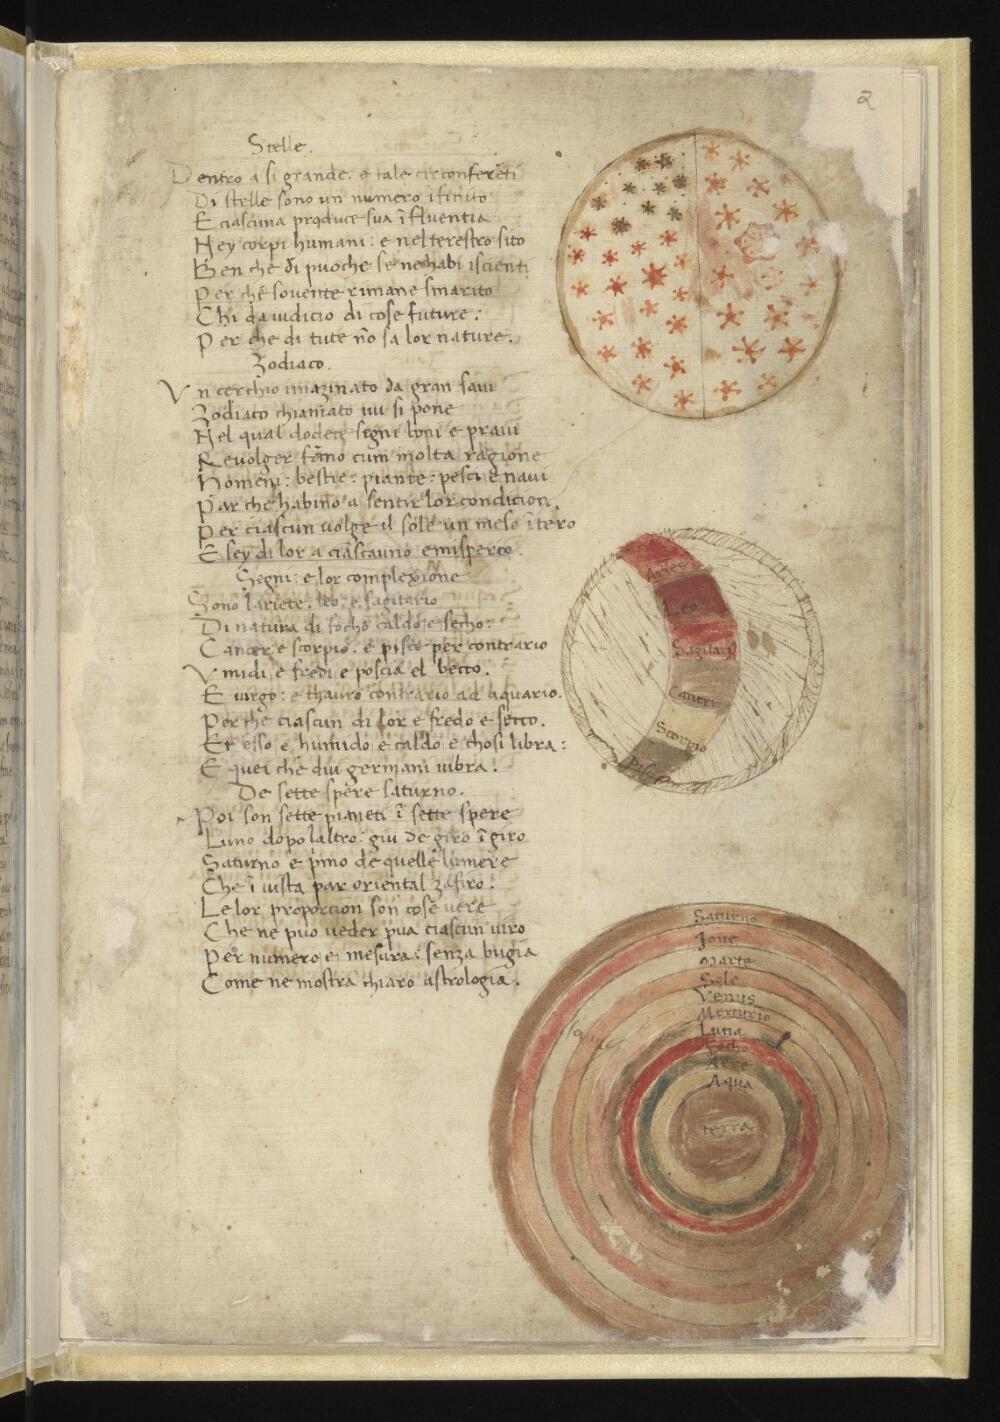 2
Stelle.
Dentro a si grande. e tale circonferēti
Di stelle sono un numero īfinito
E ciascuna produce sua īfluentia
Ney corpi humani: e nel terestro sito
Ben che di puoche se ne habi iscienti
Per che sovente rimane smarito
Chi da iudicio di cose future:
Per che di tute nō sa lor nature.
Zodiaco.
Vn cerchio imazinato da gran savi
Zodiaco chiamato ivi si pone
Nel qual dodece segni boni e pravi
Revolger fāno cum molta ragione
Homeni: bestie: piante: pesci e navi
Par che habino a sentir lor condicion.
Per ciascun volge il sole un mese ītero
E sey di lor a ciascauno emisperio.
Segni: e lor complexione
Sono lariete. leo. e sagitario
Di natura di focho caldo e secho:
Cancer e scorpio. e pisce per contrario
Vmidi e fredi e poscia el becco.
E virgo: e thauro contrario ad aquario.
Perche ciascun di lor e fredo e secco.
Et esso e humido e caldo e chosi libra:
E quei che diu germani vibra.
De sette spere saturno.
Poi son sette pianeti ī sette spere
Luno dopo laltro: giu de giro ī giro
Saturno e pmo de quelle lumere
Che ī vista par oriental zafiro:
Le lor proporcion son cose vere
Che ne puo veder pua ciascun viro
Per numero e mesura: senza bugia
Come ne mostra chiaro astrologia.
Aries
Leo
Sagitari
Cancer
Scorpio
Pisce
Saturno
Joue
Marte
Sole
Venus
Mercurio
Luna
Focho
Aere
Aqua
terra
2